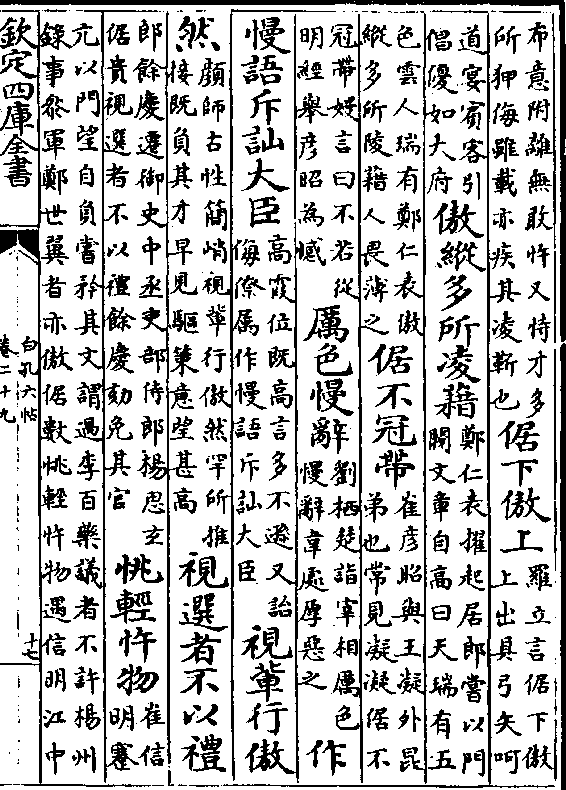 布意附離無敢忤又恃才多
所狎侮雖載亦疾其凌靳也
倨下傲上
羅立言倨下傲
上出具弓矢呵
道宴賓客引
倡優如大府
傲縱多所凌藉
鄭仁表擢起居郎嘗以門
閥文章自高曰天瑞有五
色雲人瑞有鄭仁表傲
縱多所陵藉人畏薄之
倨不冠帶
崔彥昭與王凝外昆
弟也常見凝凝倨不
冠帶嫚言曰不若從
明經舉彥昭為憾
厲色慢辭
劉栖楚詣宰相厲色
慢辭韋處厚惡之
作
慢語斥訕大臣
高霞位既高言多不遜又詒
侮僚属作慢語斥訕大臣
視輩行傲
然
顔師古性簡峭視輩行傲然罕所推
接既負其才早見驅策意望甚高
視選者不以禮
郎餘慶遷御史中丞吏部侍郎楊思玄
倨貴視選者不以禮餘慶劾免其官
恌輕忤物
崔信
明蹇
亢以門望自負嘗矜其文謂過李百藥議者不許楊州
錄事叅軍鄭世翼者亦傲倨數恌輕忤物遇信明江中
欽定四庫全書
白孔六帖
卷二十九
十七